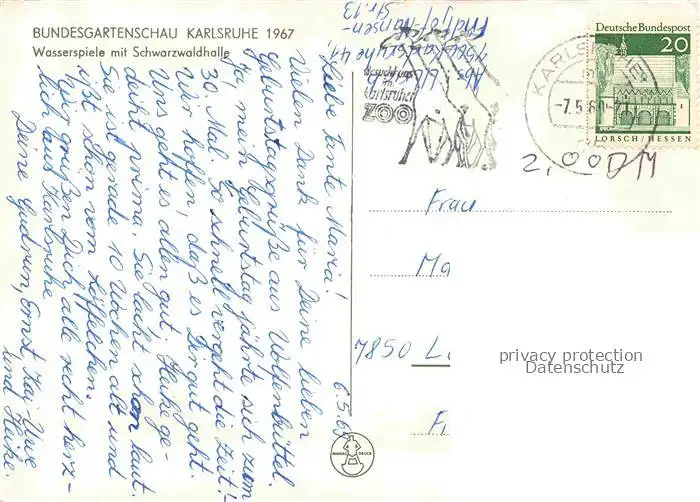 BUNDESGARTENSCHAU KARLSRUHE 1967
Wasserspiele mit Schwarzwaldhalle
6.5.68
Liebe Tante Maria!
Vielen Dank für Deine lieben
Geburtstagsgrüße aus Wolfenbüttel.
Ja, mein Geburtstag jährte sich zum
30. Mal. So schnell vergeht die Zeit!
Wir hoffen, daß es Dir gut geht.
Uns geht es allen gut, Heike ge-
deiht prima. Sie lacht schon laut.
Sie ist gerade 10 Wochen alt und
ißt schon vom Löffelchen.
grüßen Dich alle recht herz-
lich aus Karlsruhe
Deine Gudrun, Ernst, Kai-Uwe
und Heike.
Abs.
75 Karlsruhe 41
Fridtjof-Nansen-
Str. 13
Besucht uns
im
Karlsruher
ZOO
KARLSRUHE
-7.5.68-21
Deutsche Bundespost
20
LORSCH/HESSEN
2,00DM
Frau
Ma
7850 L
privacy protection
Datenschutz
DRUCK